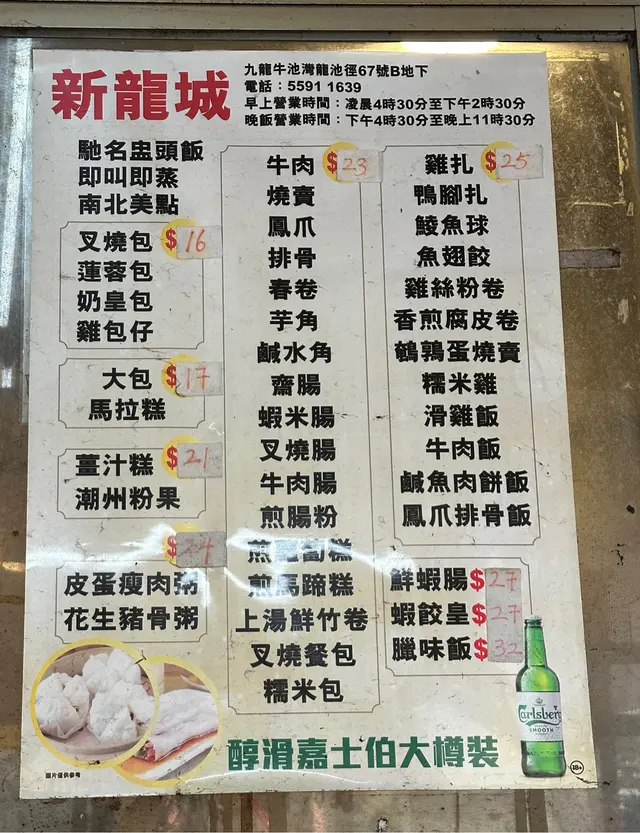 新龍城
九龍牛池灣龍池徑67號B地下
電話：5591 1639
早上營業時間：凌晨4時30分至下午2時30分
晚飯營業時間：下午4時30分至晚上11時30分
馳名盅頭飯
即叫即蒸
南北美點
叉燒包 $16
蓮蓉包
奶皇包
雞包仔
大包 $17
馬拉糕
薑汁糕 $21
潮州粉果
$
皮蛋瘦肉粥
花生豬骨粥
牛肉 $23
燒賣
鳳爪
排骨
春卷
芋角
鹹水角
齋腸
蝦米腸
叉燒腸
牛肉腸
煎腸粉
煎蘿蔔糕
煎馬蹄糕
上湯鮮竹卷
叉燒餐包
糯米包
雞扎 $25
鴨腳扎
鯪魚球
魚翅餃
雞絲粉卷
香煎腐皮卷
鵪鶉蛋燒賣
糯米雞
滑雞飯
牛肉飯
鹹魚肉餅飯
鳳爪排骨飯
鮮蝦腸 $27
蝦餃皇 $27
臘味飯 $32
Carlsberg
SMOOTH
18+
醇滑嘉士伯大樽裝
圖片僅供參考